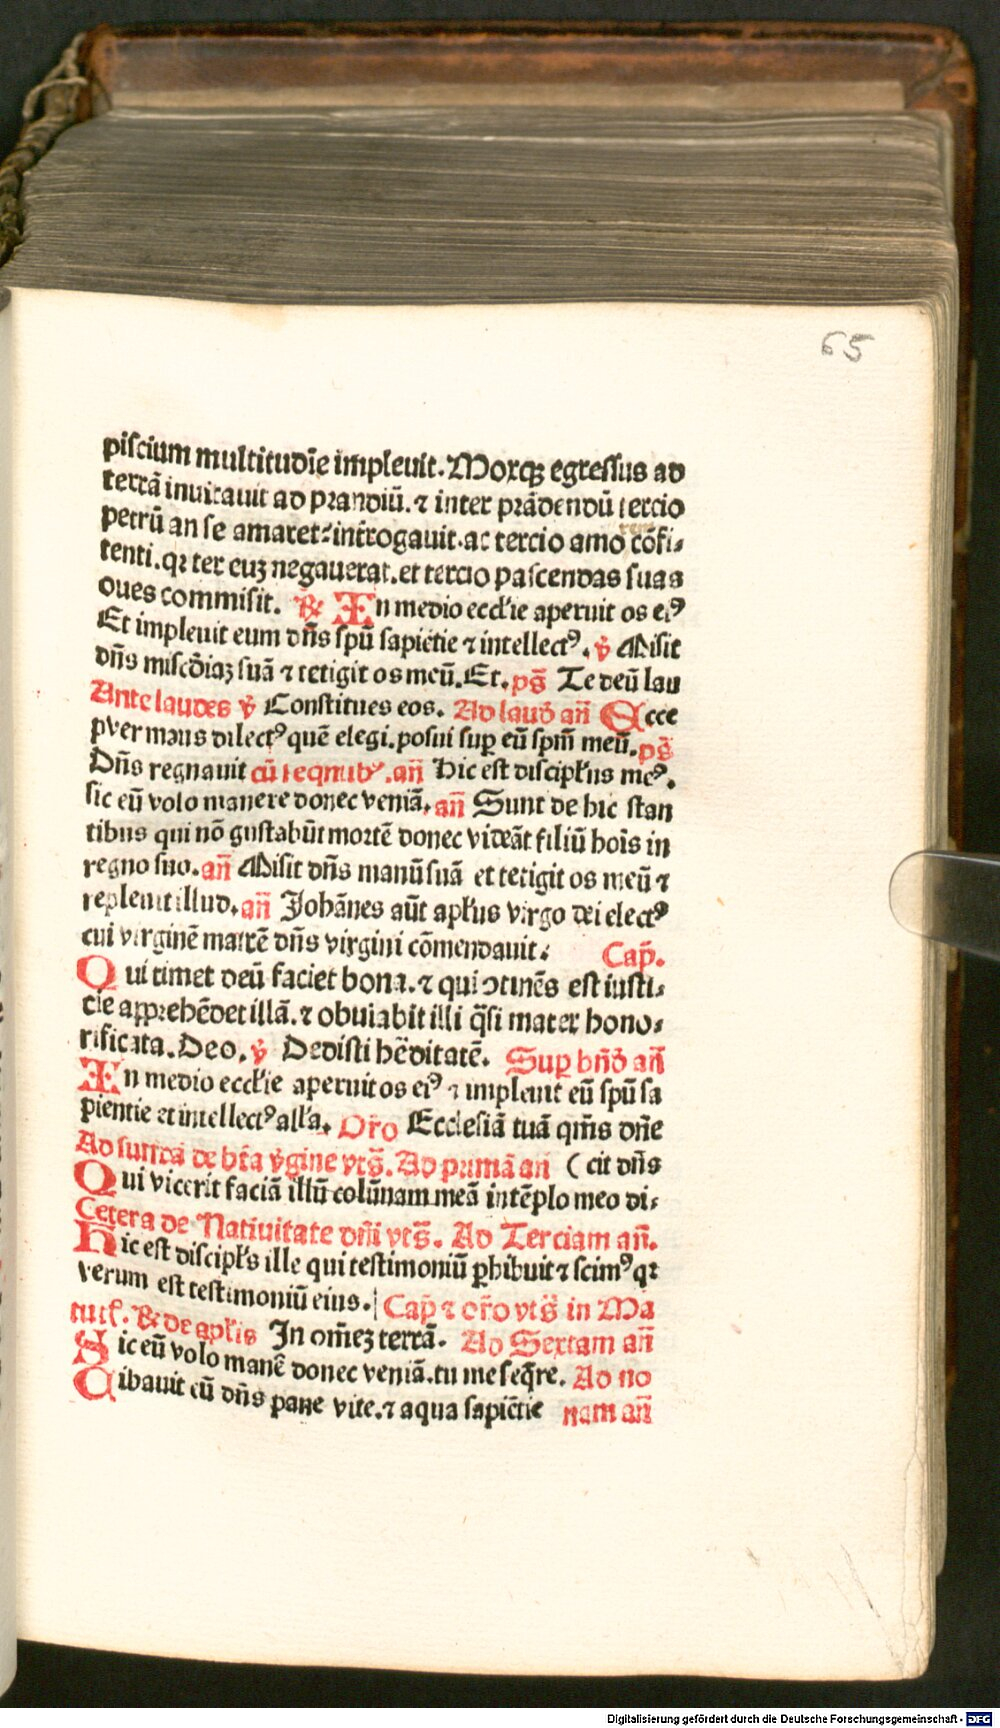 65
piscium multitudīe impleuit. Morqꝫ egressus ad
terrā inuitauit ad prandiū. ⁊ inter prādendū tercio
petrū an se amaret: intrrogauit. ac tercio amo cōfi⸗
tenti. qꝛ ter euꝫ negauerat. et tercio pascendas suas
oues commisit. ℟ In medio eccl̄ie aperuit os eiꝰ
Et impleuit eum dn̄s spū sapiētie ⁊ intellectꝰ. ℣ Misit
dn̄s misc̄diaꝫ suā ⁊ tetigit os meū. Et. ps̄ Te deū lau
Ante laudes ℣ Constitues eos. Ad laud̄ an̄ Ecce
pver meus dilectꝰ quē elegi. posui suꝑ eū spm̄ meū. ps̄
Dn̄s regnauit cū reqnubꝰ. an̄ Hic est discipl̄us meꝰ.
sic eū volo manere donec veniā. an̄ Sunt de hic stan
tibus qui nō gustabūt mortē donec videāt filiū hoīs in
regno suo. an̄ Misit dn̄s manū suā et tetigit os meū ⁊
repleuit illud. an̄ Johānes aūt apl̄us virgo dei electꝰ
cui virginē matrē dn̄s virgini cōmendauit: Cap̄.
Qui timet deū faciet bona. ⁊ qui ꝯtinēs est iusti⸗
cie apprehēdet illā. ⁊ obuiabit illi q̄si mater hono⸗
rificata. Deo. ℣ Dedisti hēditatē. Suꝑ bn̄d̄ an̄
In medio eccl̄ie aperuit os eiꝰ ⁊ impleuit eū spū sa
pientie et intellectꝰ all̄a. Or̄o Ecclesiā tuā qm̄s dn̄e
Ad suffrā de btā v̄gine vts̄. Ad primā an̄ (cit dn̄s
Qui vicerit faciā illū colūnam meā in tēplo meo di⸗
Cetera de Natiuitate dn̄i vts̄. Ad Terciam an̄.
Hic est discipl̄s ille qui testimoniū ꝑhibuit ⁊ scimꝰ qꝛ
verum est testimoniū eius. Cap̄ ⁊ or̄o vts̄ in Ma
tut̄. ℟ de apl̄is In om̄eꝫ terrā. Ad Sextam an̄
Sic eū volo manē donec veniā. tu me seq̄re. Ad no
Cibauit eū dn̄s pane vite. ⁊ aqua sapiētie nam an̄
Digitalisierung gefördert durch die Deutsche Forschungsgemeinschaft - DFG